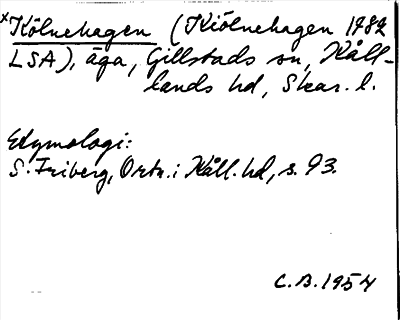 ×Kölnehagen (Kiölnehagen 1782
LSA), äga, Gillstads sn, Kåll-
lands hd, Skar. l.
Etymologi:
S. Friberg, Ortn. i Kåll. hd, s. 93.
C.B. 1954